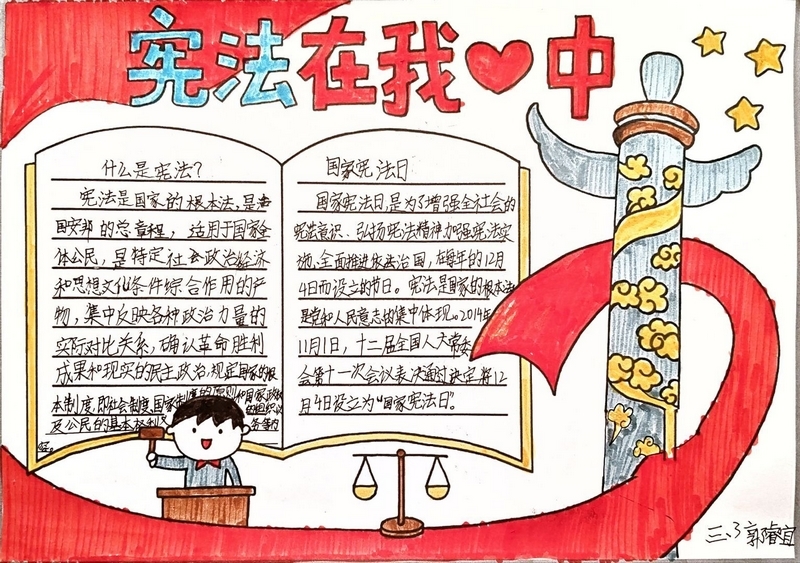 宪法在我中
什么是宪法?
宪法是国家的根本法,是治
国安邦的总章程,适用于国家全
体公民,是特定社会政治经济
和思想文化条件综合作用的产
物,集中反映各种政治力量的
实际对比关系,确认革命胜利
成果和现实的民主政治,规定国家的根
本制度,即社会制度、国家制度的原则和国家政权
的组织以
及公民的基本权利义务等内
容。
国家宪法日
国家宪法日,是为了增强全社会的
宪法意识、弘扬宪法精神加强宪法实
施、全面推进依法治国,在每年的12月
4日而设立的节日。宪法是国家的根本法
是党和人民意志的集中体现。2014年
11月1日,十二届全国人大常委
会第十一次会议表决通过决定将12
月4日设立为“国家宪法日”。
三、3 郭睿宜